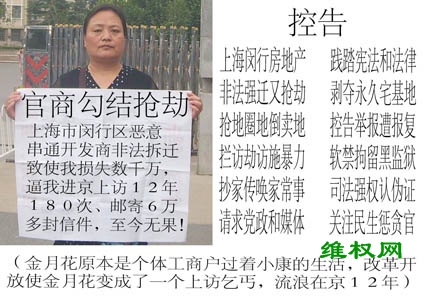 官商勾结抢劫
上海市闵行区恶意
串通开发商非法拆迁
致使我损失数千万，
逼我进京上访12年
180次、邮寄6万
多封信件，至今无果！
控告
上海闵行房地产 践踏宪法和法律
非法强迁又抢劫 剥夺永久宅基地
抢地圈地倒卖地 控告举报遭报复
拦访劫访施暴力 软禁拘留黑监狱
抄家传唤家常事 司法强权认伪证
请求党政和媒体 关注民生惩贪官
维权网
（金月花原本是个体工商户过着小康的生活，改革开
放使金月花变成了一个上访乞丐，流浪在京12年）